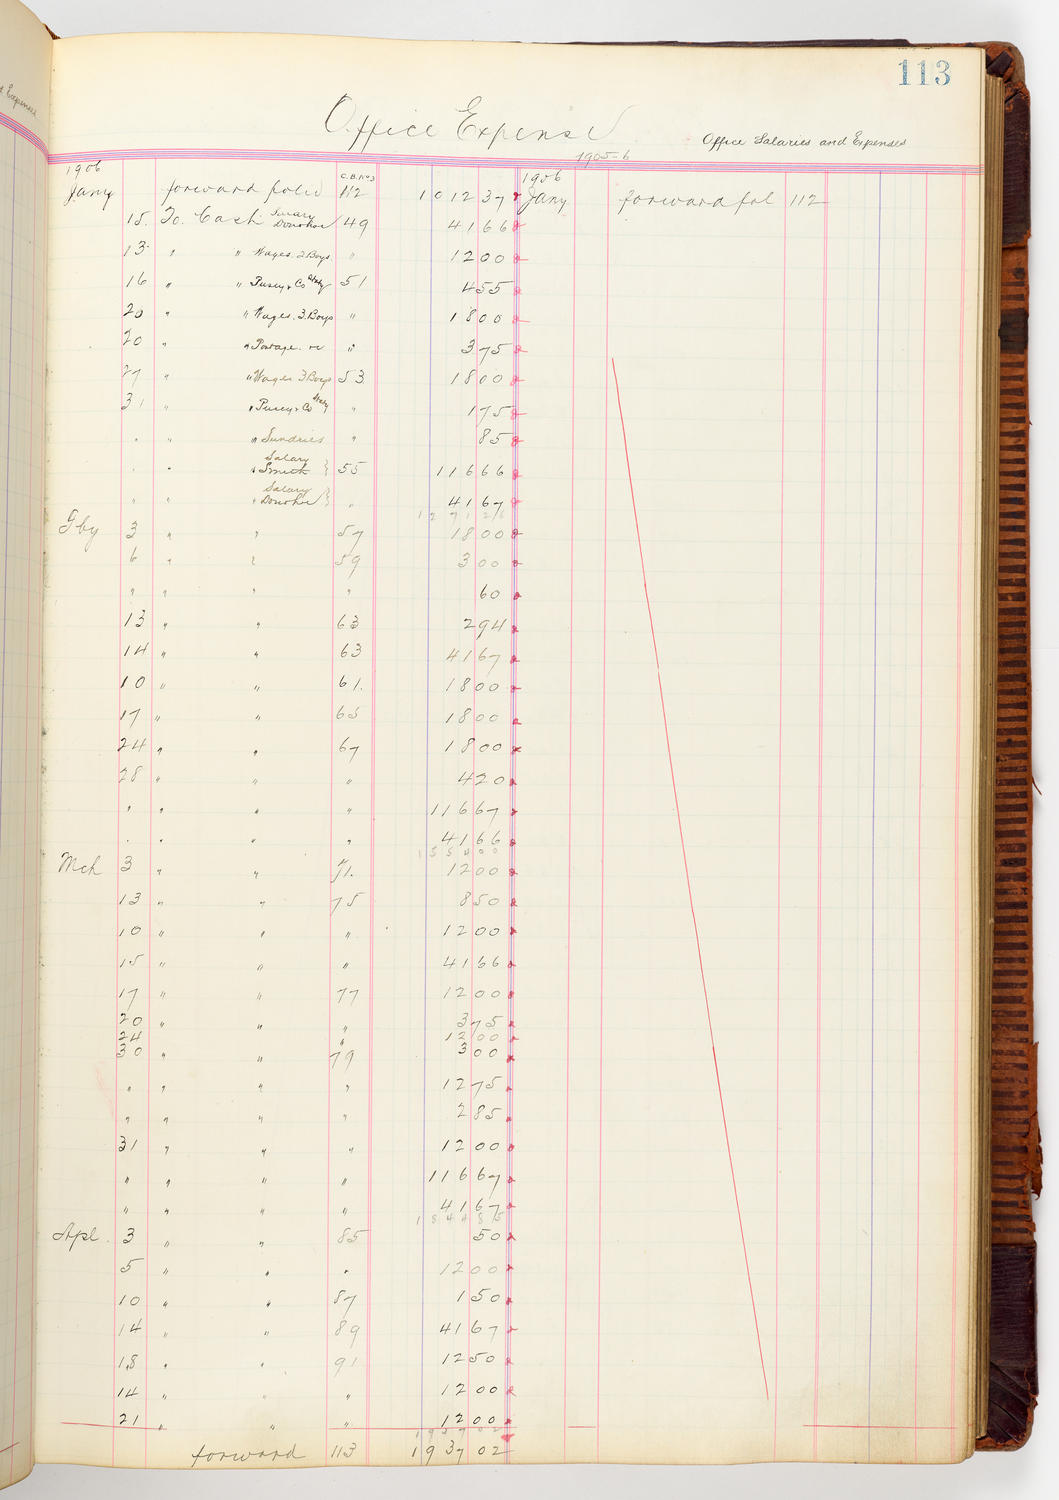 113
Office Expense
Office Salaries and Expenses
1905-6
1906 C.B. No3 1906
Jany forward folio 112 1012 37 Jany forward fol 112
15. To Cash Salary Donohoe 49 41 66
13 " " Wages. 2 Boys. " 12 00
16 " " Pusey & Co Staty 51 4 55
20 " " Wages. 3. Boys " 18 00
20 " " Postage. " 3 75
27 " " Wages 3 Boys 53 18 00
31 " " Pusey & Co Staty " 1 75
" " " Sundries " 85
" " " Salary Smith } 55 116 66
" " " Salary Donohoe } " 41 67
1271 26
Fby 3 " " 57 18 00
6 " " 59 3 00
" " " " 60
13 " " 63 2 94
14 " " 63 41 67
10 " " 61. 18 00
17 " " 65 18 00
24 " " 67 18 00
28 " " " 4 20
" " " " 116 67
" " " " 41 66
1554 00
Mch 3 " " 71. 12 00
13 " " 75 8 50
10 " " " 12 00
15 " " " 41 66
17 " " 77 12 00
20 " " " 3 75
24 " 12 00
30 " " 79 3 00
" " " " 12 75
" " " " 2 85
31 " " " 12 00
" " " " 116 67
" " " " 41 67
1844 85
Apl. 3 " " 85 50
5 " " " 12 00
10 " " 87 1 50
14 " " 89 41 67
18 " " 91 12 50
14 " " " 12 00
21 " " " 12 00
1937 02
forward 113 1937 02